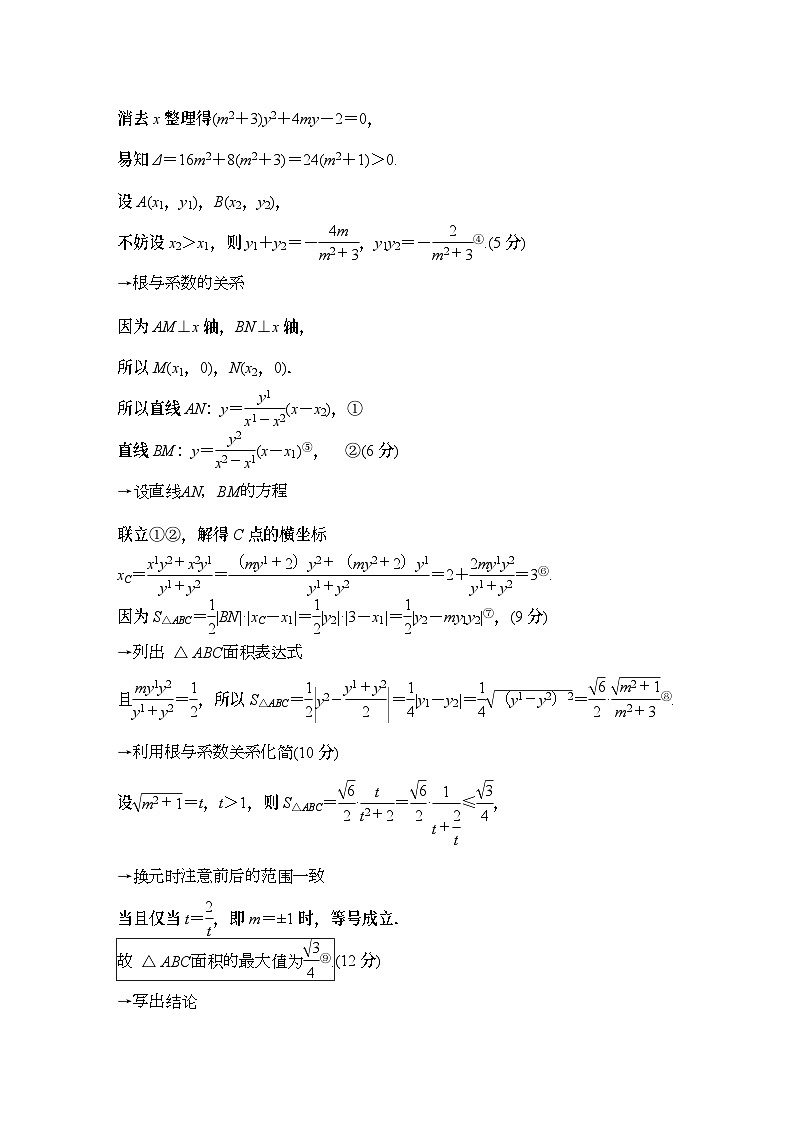 消去 x 整理得(m²+3)y²+4my-2=0,
易知Δ=16m²+8(m²+3)=24(m²+1)>0.
设 A(x₁,y₁),B(x₂,y₂),
不妨设 x₂>x₁,则 y₁+y₂=-\frac{4m}{m²+3},y₁y₂=-\frac{2}{m²+3}④.(5 分)
→根与系数的关系
因为 AM⊥x 轴,BN⊥x 轴,
所以 M(x₁,0),N(x₂,0).
所以直线 AN:y=\frac{y1}{x1-x2}(x-x₂),①
直线 BM:y=\frac{y2}{x2-x1}(x-x₁)⑤, ②(6 分)
→设直线AN,BM的方程
联立①②,解得 C 点的横坐标
x_C=\frac{x1y2+x2y1}{y1+y2}=\frac{(my1+2)y2+(my2+2)y1}{y1+y2}=2+\frac{2my1y2}{y1+y2}=3⑥.
因为 S△ABC=\frac{1}{2}|BN|·|x_C-x₁|=\frac{1}{2}|y₂|·|3-x₁|=\frac{1}{2}|y₂-my₁y₂|⑦,(9 分)
→列出 △ABC面积表达式
且\frac{my1y2}{y1+y2}=\frac{1}{2},所以 S△ABC=\frac{1}{2}|y2-\frac{y1+y2}{2}|=\frac{1}{4}|y₁-y₂|=\frac{1}{4}\sqrt{(y1-y2)2}=\frac{\sqrt{6}}{2}·\frac{\sqrt{m²+1}}{m²+3}⑧.
→利用根与系数关系化简(10 分)
设\sqrt{m²+1}=t,t>1,则 S△ABC=\frac{\sqrt{6}}{2}·\frac{t}{t²+2}=\frac{\sqrt{6}}{2}·\frac{1}{t+\frac{2}{t}}≤\frac{\sqrt{3}}{4},
→换元时注意前后的范围一致
当且仅当 t=\frac{2}{t},即 m=±1 时,等号成立.
故 △ABC面积的最大值为\frac{\sqrt{3}}{4}⑨.(12 分)
→写出结论